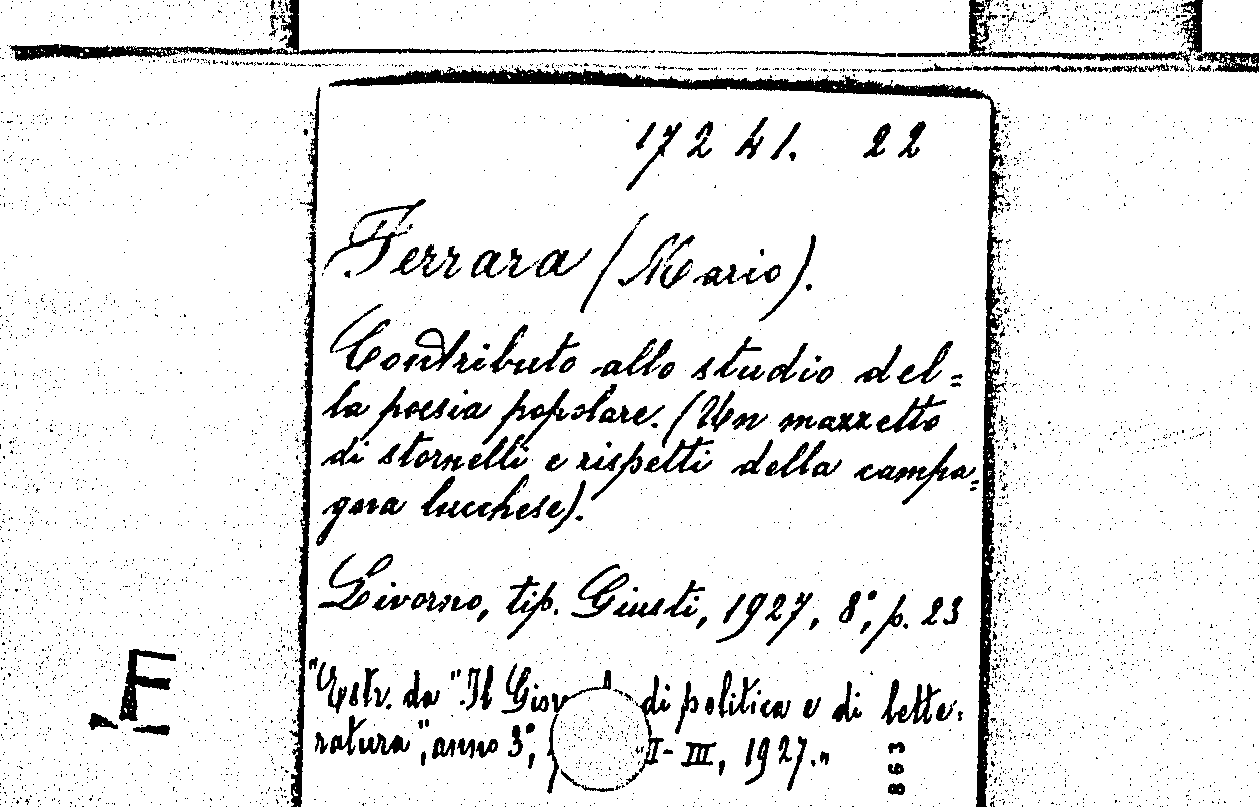 172 41. 22
Ferrara (Mario).
Contributo allo studio del=
la poesia popolare. (Un mazzetto
di stornelli e rispetti della campa=
gna lucchese).
Livorno, tip. Giusti, 1927, 8°, p. 23
"Estr. da "Il di politica e di lette=
ratura", anno 3°, II-III, 1927."
863
E